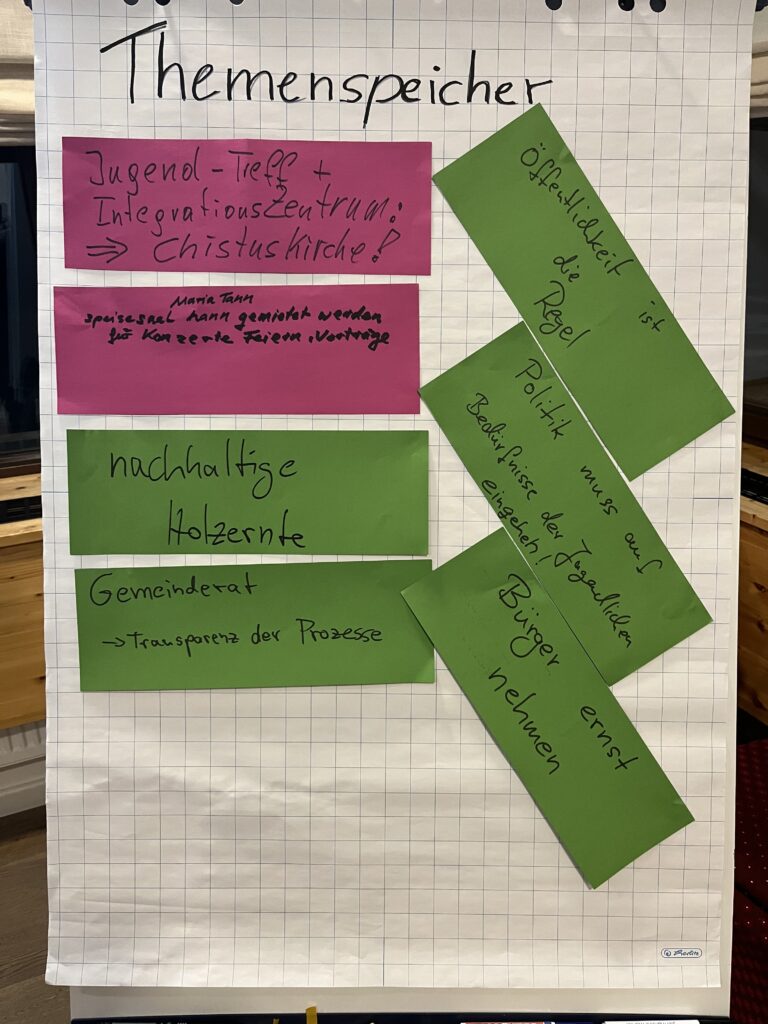 Themenspeicher
Jugend-Treff +
Integrationszentrum:
⇒ Chistuskirche!
Maria Tann
speisesaal kann gemietet werden
für Konzerte Feiern, Vorträge
nachhaltige
Holzernte
Gemeinderat
→ Transparenz der Prozesse
Öffentlichkeit ist
die
Regel
Politik muss auf
Bedürfnisse der Jugendlichen
eingehen!
Bürger ernst
nehmen